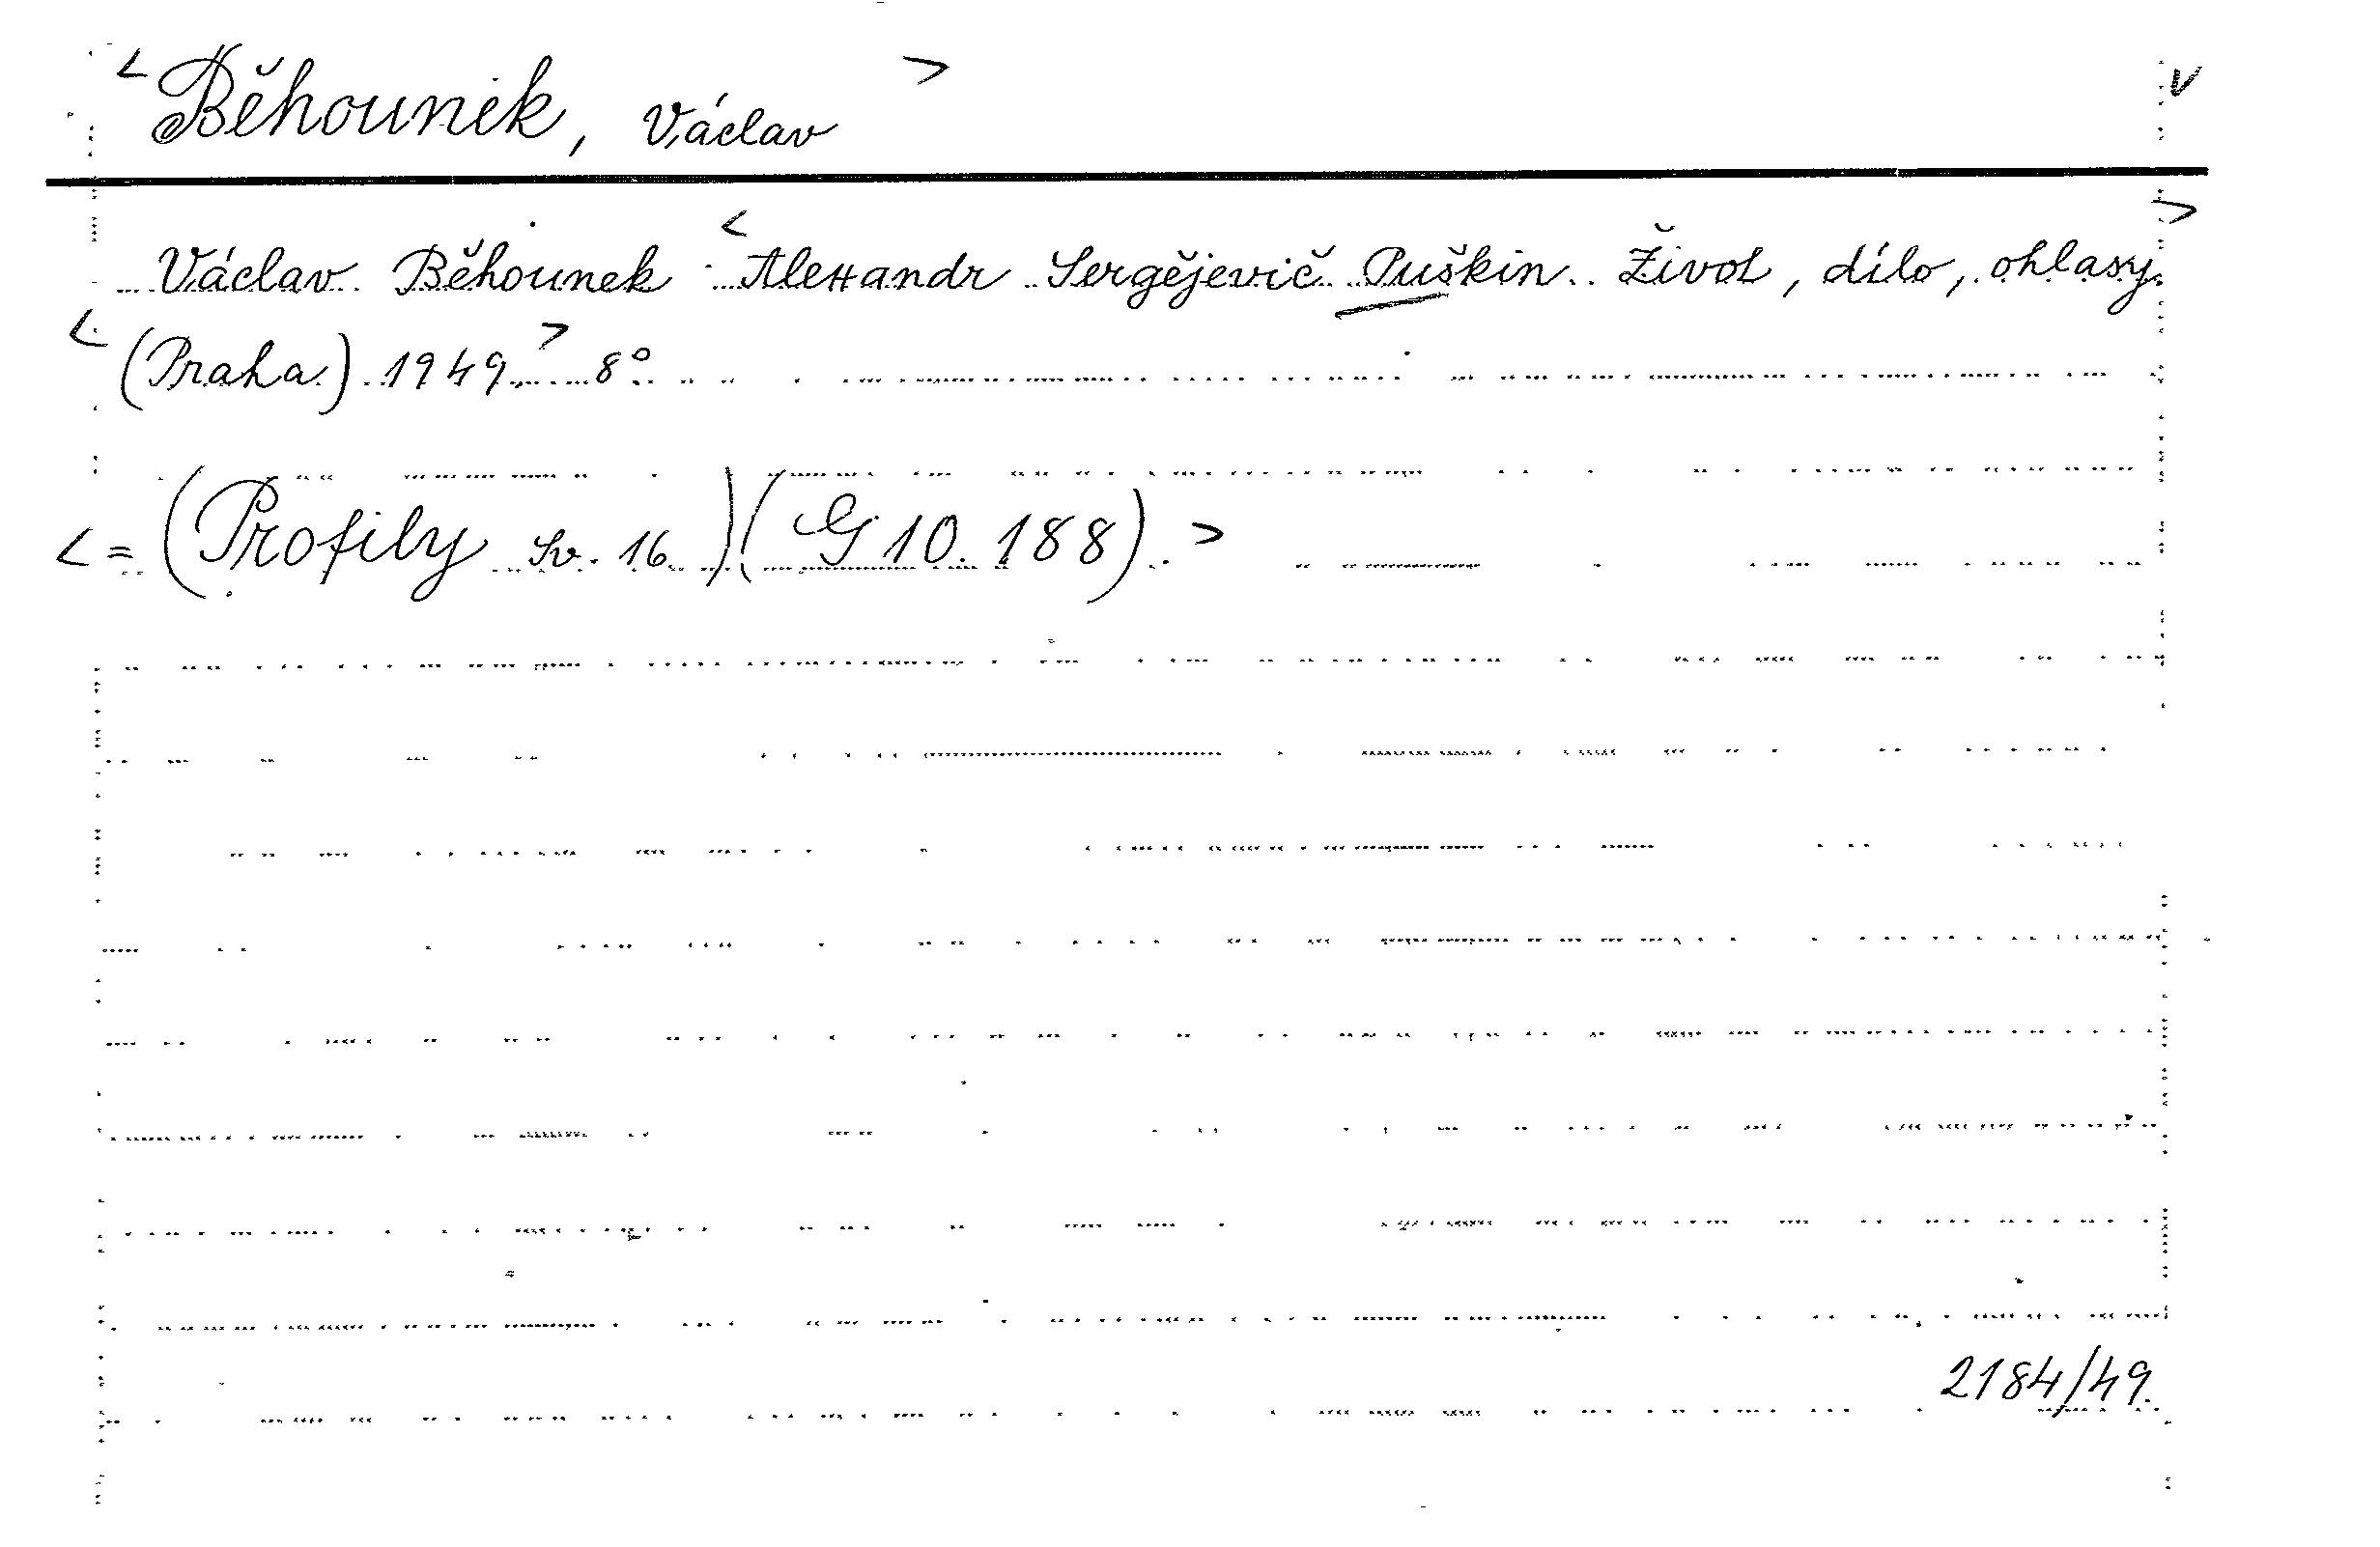 < Běhounek, Václav > v
Václav Běhounek < Alexandr Sergějevič Puškin. Život, dílo, ohlasy. >
< (Praha) 1949. > 8°
< = (Profily sv. 16.)(G 10.188). >
2184/49.